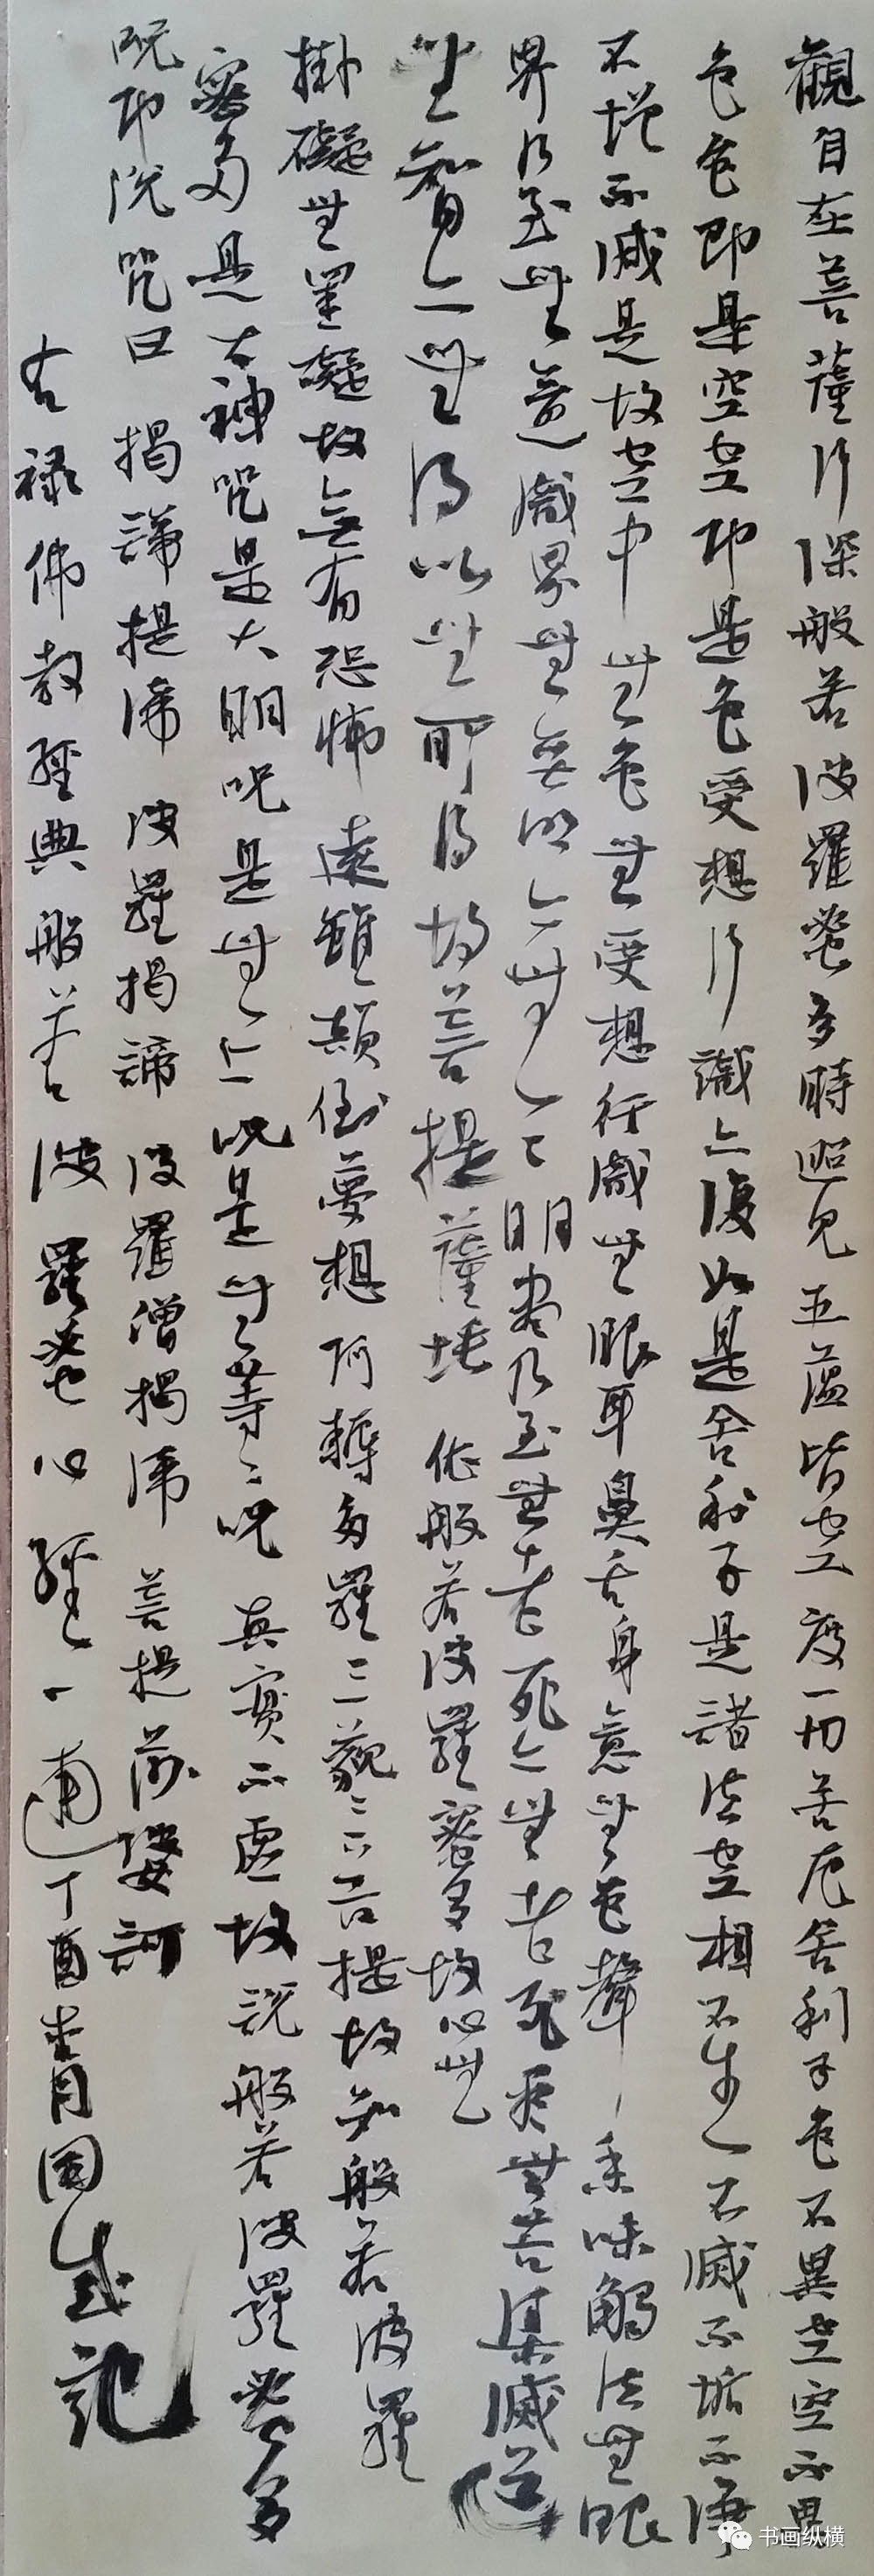 觀自在菩薩行深般若波羅蜜多時照見五蘊皆空度一切苦厄舍利子色不異空空不異
色色即是空空即是色受想行識亦復如是舍利子是諸法空相不生不滅不垢不淨
不增不減是故空中無色無受想行識無眼耳鼻舌身意無色聲香味觸法無眼
界乃至無意識界無無明亦無無明盡乃至無老死亦無老死盡無苦集滅道
無智亦無得以無所得故菩提薩埵依般若波羅蜜多故心無
掛礙無罣礙故無有恐怖遠離顛倒夢想阿耨多羅三藐三菩提故知般若波羅
密多是大神咒是大明咒是無上咒是無等等咒真實不虛故說般若波羅蜜多
咒即說咒曰 揭諦揭諦 波羅揭諦 波羅僧揭諦 菩提薩婆訶
右祿佛教經典般若波羅蜜心經一通丁酉青國成記
书画纵横